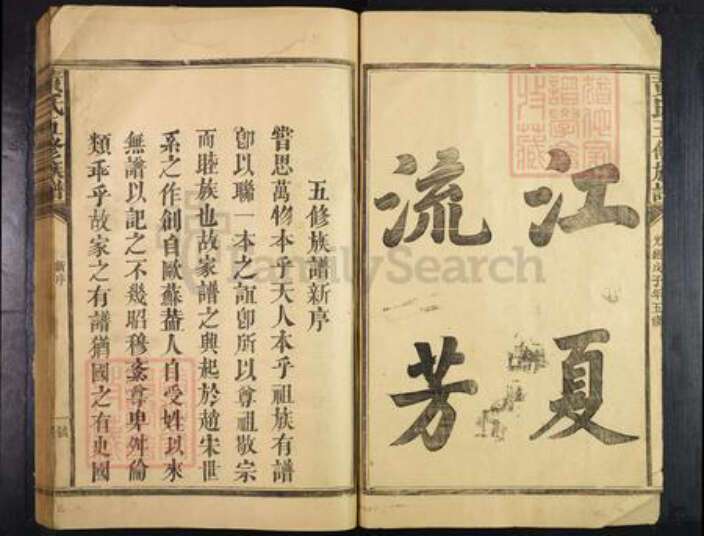 黃氏五修族譜
光緒戊子年五修
江夏
流芳
五修族譜新序
嘗思萬物本乎天人本乎祖族有譜
卽以聯一本之誼卽所以尊祖敬宗
而睦族也故家譜之興起於趙宋世
系之作創自歐蘇葢人自受姓以來
無譜以記之不幾昭穆紊尊卑舛倫
類乖乎故家之有譜猶國之有史國
黃氏五修族譜
新序
FamilySearch